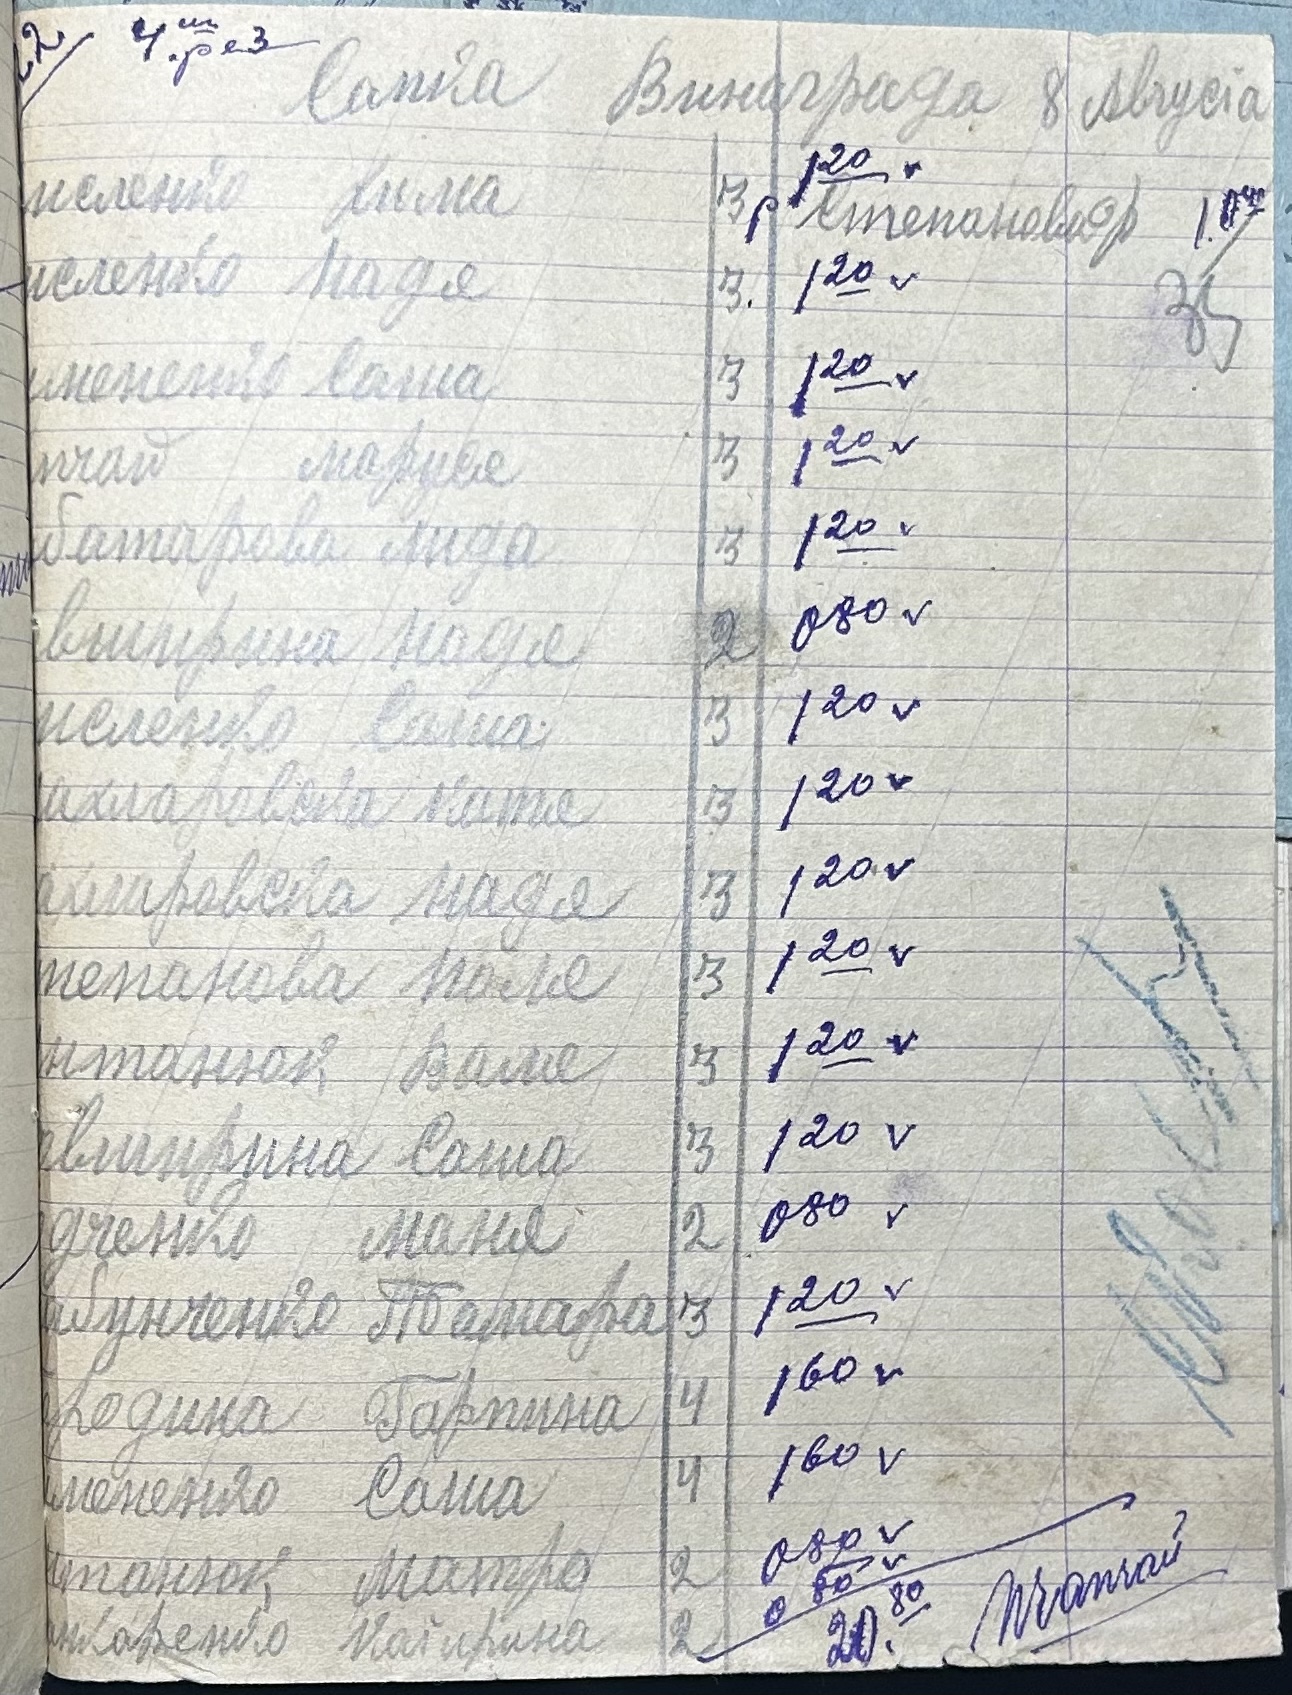 22 4 ш.рез
Сапка Винограда 8 Августа
исленко Хима 3 р 1 20 v
Степановадр
исленко Надя 3. 1 20 v
35
мененко Саша 3 1 20 v
пчай Маруся 3 1 20 v
батарова Лида 3 1 20 v
вширина Надя 2 0 80 v
исленко Саша 3 1 20 v
ахмаровска Катя 3 1 20 v
ахмровска Надя 3 1 20 v
тепанова Поля 3 1 20 v
итанюк Валя 3 1 20 v
авширина Саша 3 1 20 v
дченко Маня 2 0 80 v
абунченко Тамара 3 1 20 v
родина Гарпина 4 1 60 v
мененко Саша 4 1 60 v
итанюк Матро 2 0 80 v
нкаренко Катирина 2 0 80 v
20.80